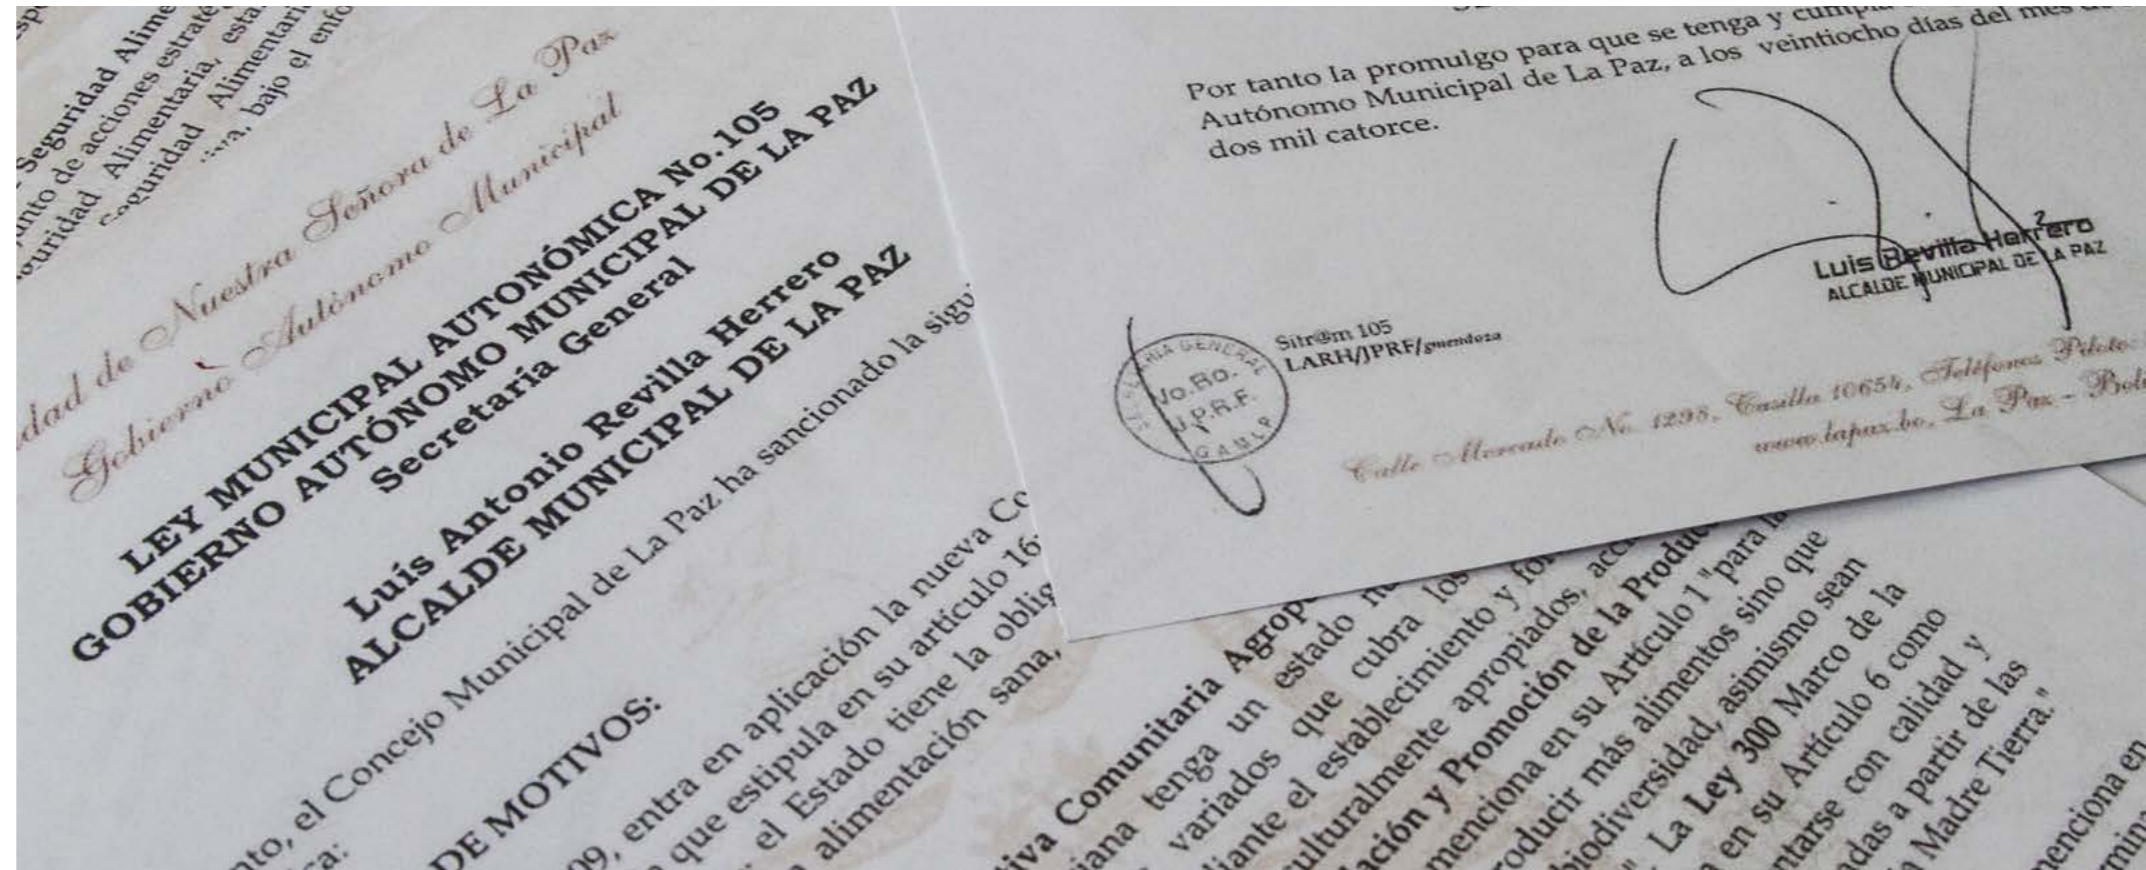 Seguridad Alime
de acciones estraté
Alimentaria, esta
Seguridad Alimentari
bajo el enfo
dad de Nuestra Señora de La Paz
Gobierno Autónomo Municipal
LEY MUNICIPAL AUTONÓMICA No.105
GOBIERNO AUTÓNOMO MUNICIPAL DE LA PAZ
Secretaría General
Luis Antonio Revilla Herrero
ALCALDE MUNICIPAL DE LA PAZ
nto, el Concejo Municipal de La Paz ha sancionado la sigu
ca:
DE MOTIVOS:
09, entra en aplicación la nueva Co
que estipula en su artículo 16
el Estado tiene la oblig
alimentación sana,
Por tanto la promulgo para que se tenga y cumpla
Autónomo Municipal de La Paz, a los veintiocho días del mes de
dos mil catorce.
Luis Revilla Herrero
ALCALDE MUNICIPAL DE LA PAZ
Sitr@m 105
LARH/JPRF/gmendoza
SECRETARIA GENERAL
Vo.Bo.
J.P.R.F.
G A M L P
Calle Mercado No. 1298, Casilla 10654, Teléfonos Piloto:
www.lapaz.bo, La Paz - Boli
tiva Comunitaria Agrop
iana tenga un estado nu
variados que cubra los
diante el establecimiento y for
culturalmente apropiados, acc
lación y Promoción de la Produc
menciona en su Artículo 1 "para la
roducir más alimentos sino que
biodiversidad, asimismo sean
". La Ley 300 Marco de la
a en su Artículo 6 como
ntarse con calidad y
adas a partir de las
a Madre Tierra."
menciona en
rmina